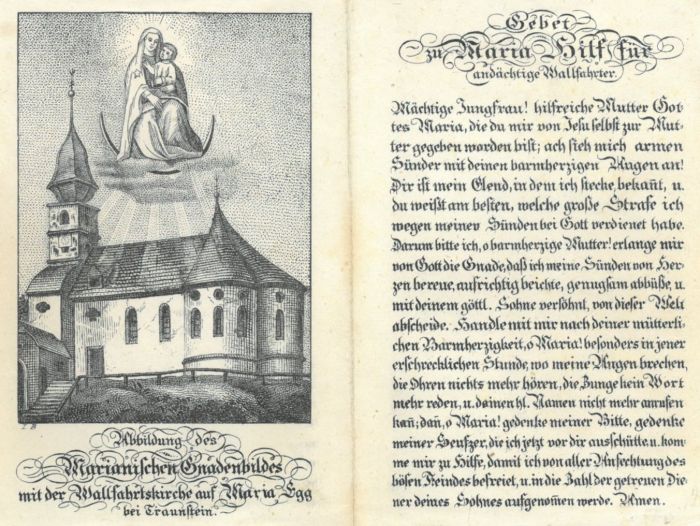 I B
Abbildung des
Marianischen Gnadenbildes
mit der Wallfahrtskirche auf Maria Egg
bei Traunstein.
Gebet
zu Maria Hilf für
andächtige Wallfahrter.
Mächtige Jungfrau! hilfreiche Mutter Got
tes Maria, die du mir von Jesu selbst zur Mut-
ter gegeben worden bist; ach sieh mich armen
Sünder mit deinen barmherzigen Augen an!
Dir ist mein Elend, in dem ich stecke, bekañt, u.
du weißt am besten, welche große Strafe ich
wegen meiner Sünden bei Gott verdienet habe.
Darum bitte ich, o barmherzige Mutter! erlange mir
von Gott die Gnade, daß ich meine Sünden von Her-
zen bereue, aufrichtig beichte, genugsam abbüße, u.
mit deinem göttl. Sohne versöhnt, von dieser Welt
abscheide. Handle mit mir nach deiner mütterli-
chen Barmherzigkeit, o Maria! besonders in jener
erschrecklichen Stunde, wo meine Augen brechen,
die Ohren nichts mehr hören, die Zunge kein Wort
mehr reden, u. deinen hl. Namen nicht mehr anrufen
kañ; dañ, o Maria! gedenke meiner Bitte, gedenke
meiner Seufzer, die ich jetzt vor dir ausschütte, u. kom-
me mir zu Hilfe, damit ich von aller Anfechtung des
bösen Feindes befreiet, u. in die Zahl der getreuen Die-
ner deines Sohnes aufgenom̃en werde. Amen.